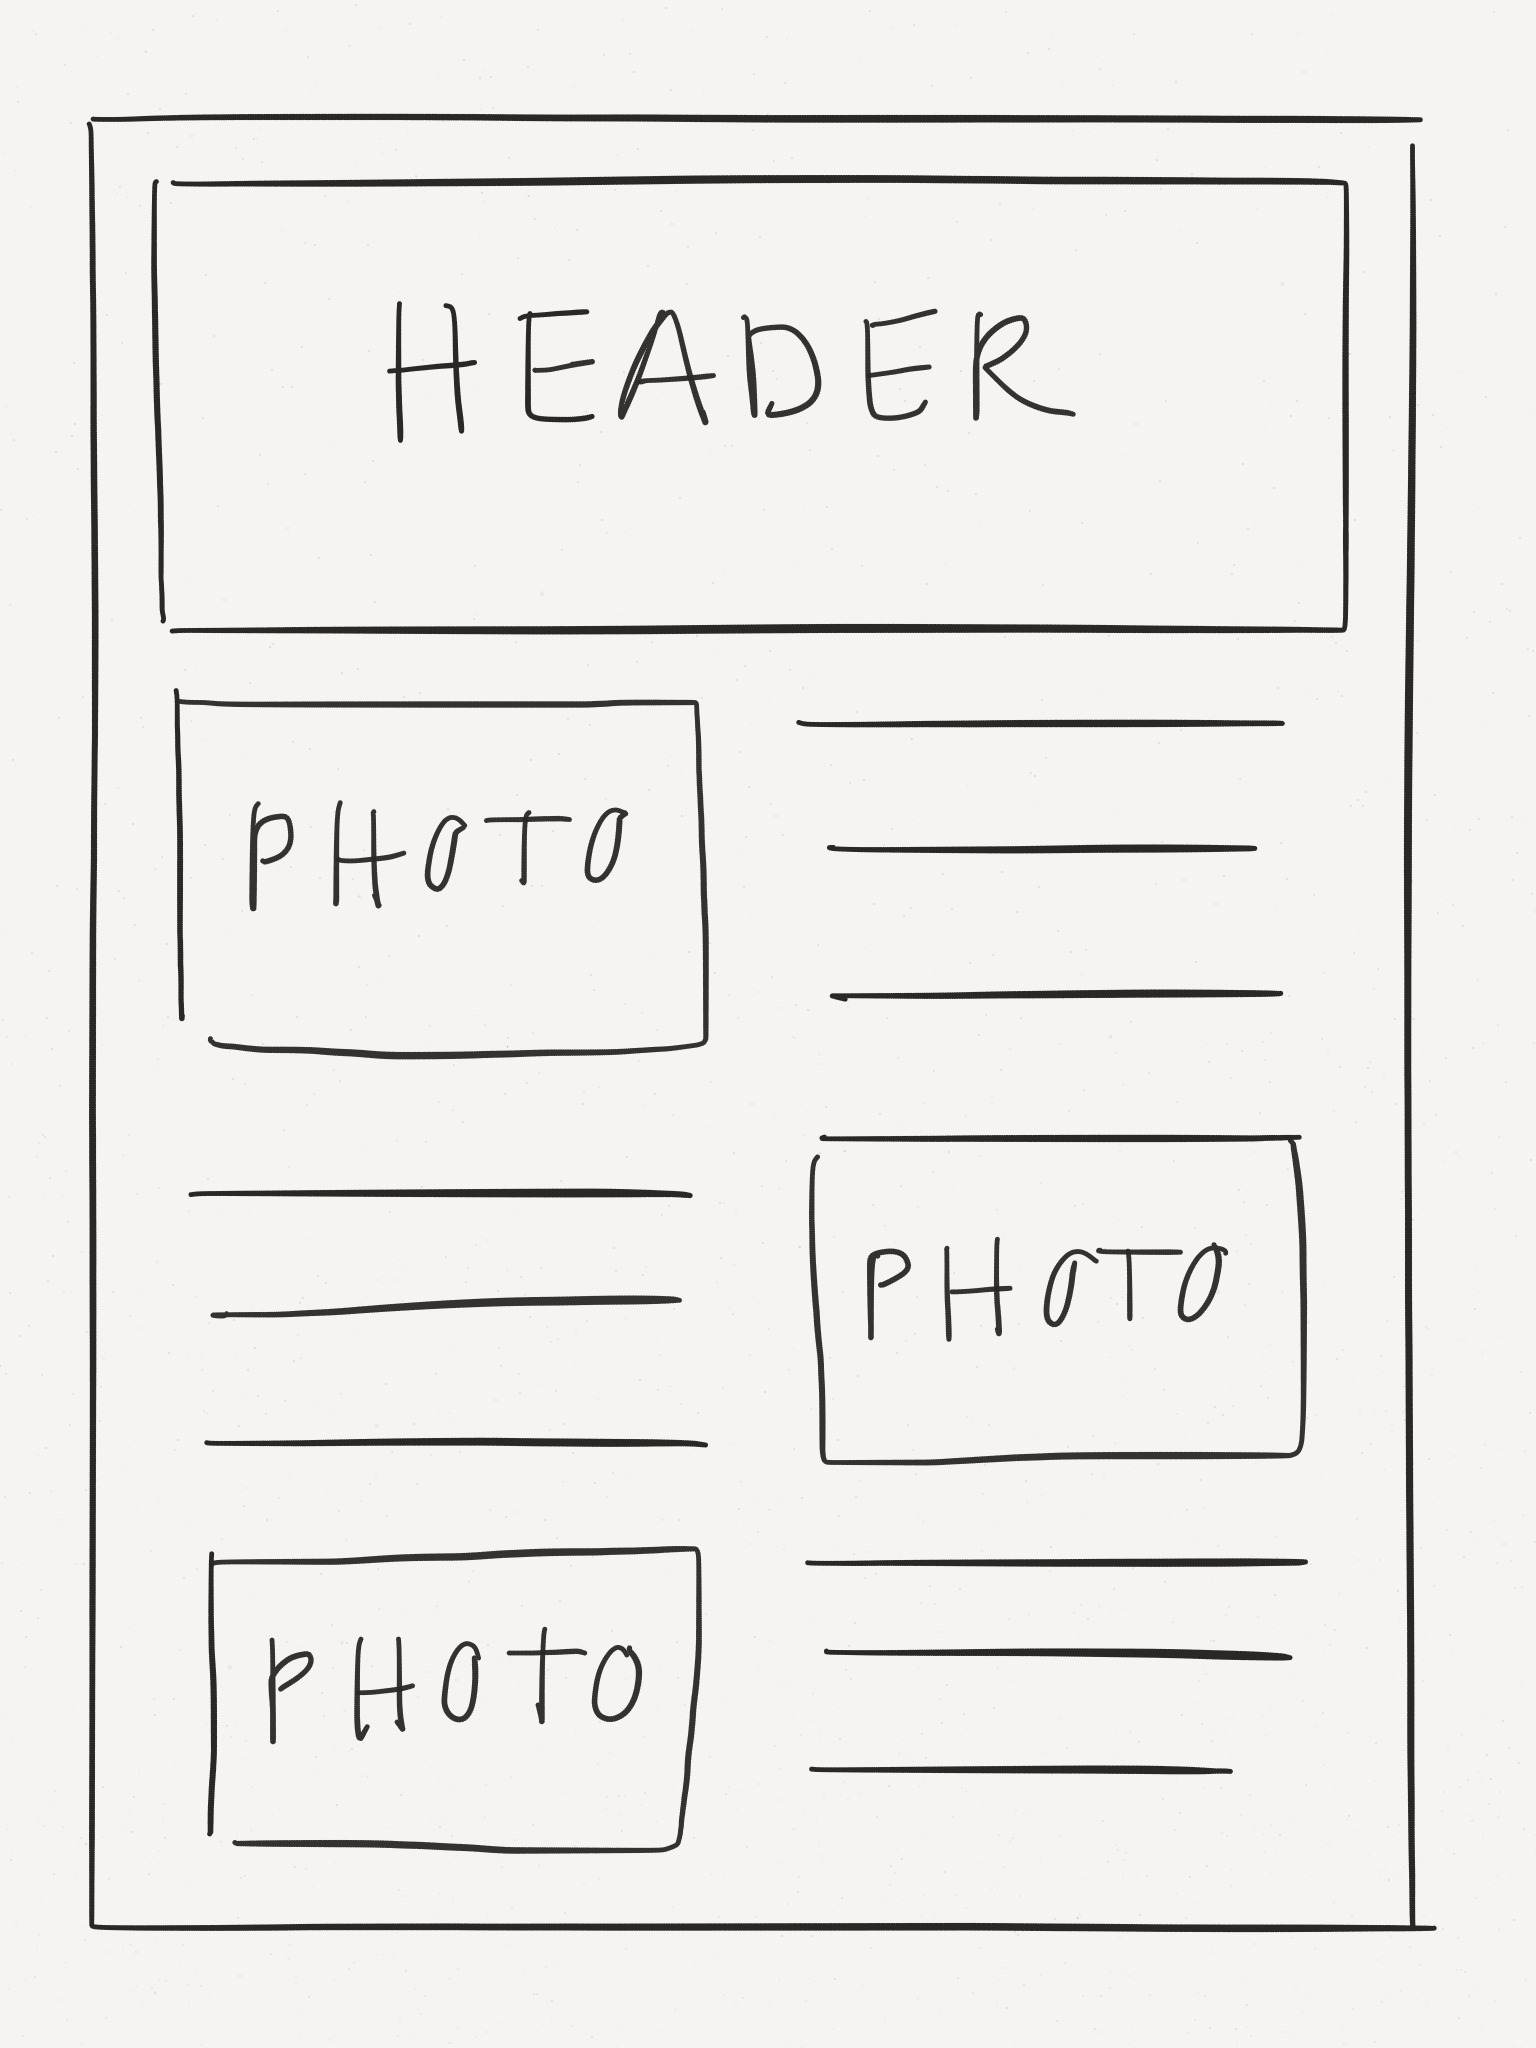 HEADER
PHOTO
PHOTO
PHOTO